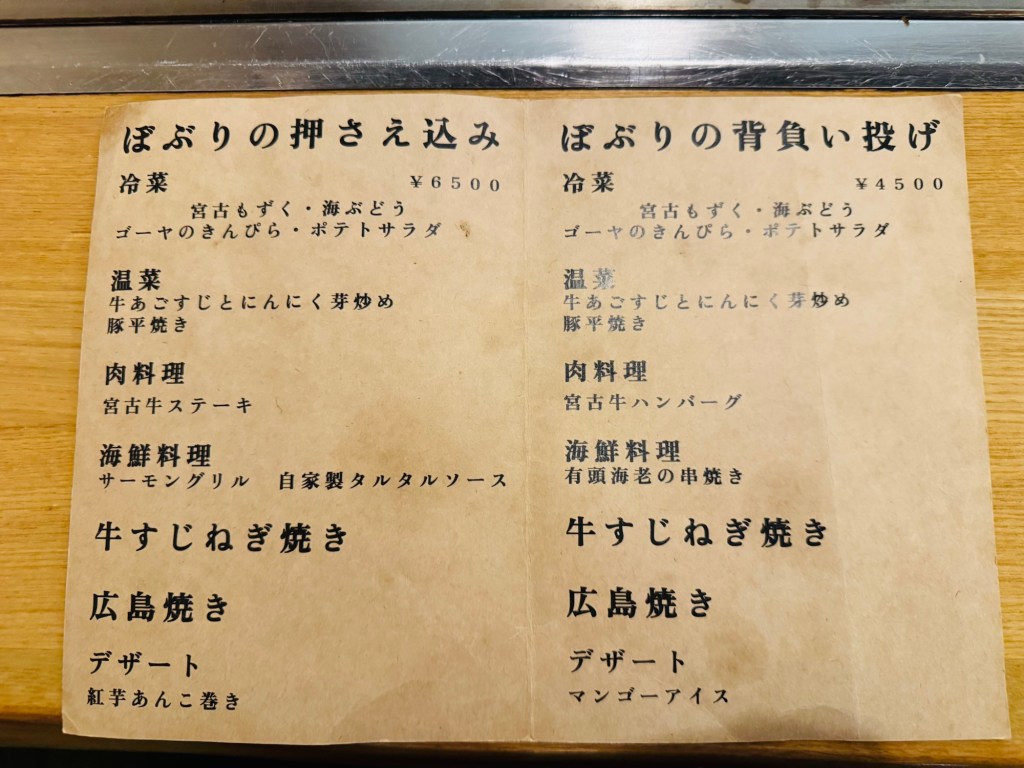 ぼぶりの押さえ込み
冷菜 ￥6500
宮古もずく・海ぶどう
ゴーヤのきんぴら・ポテトサラダ
温菜
牛あごすじとにんにく芽炒め
豚平焼き
肉料理
宮古牛ステーキ
海鮮料理
サーモングリル　自家製タルタルソース
牛すじねぎ焼き
広島焼き
デザート
紅芋あんこ巻き
ぼぶりの背負い投げ
冷菜 ￥4500
宮古もずく・海ぶどう
ゴーヤのきんぴら・ポテトサラダ
温菜
牛あごすじとにんにく芽炒め
豚平焼き
肉料理
宮古牛ハンバーグ
海鮮料理
有頭海老の串焼き
牛すじねぎ焼き
広島焼き
デザート
マンゴーアイス